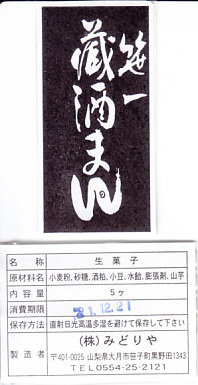 笹一
蔵酒まん
名称 生菓子
原材料名 小麦粉、砂糖、酒粕、小豆、水飴、膨張剤、山芋
内容量 5ヶ
消費期限 21.12.21
保存方法 直射日光高温多湿を避けて保存して下さい
製造者 (株)みどりや
〒401-0025 山梨県大月市笹子町黒野田1343
TEL0554-25-2121